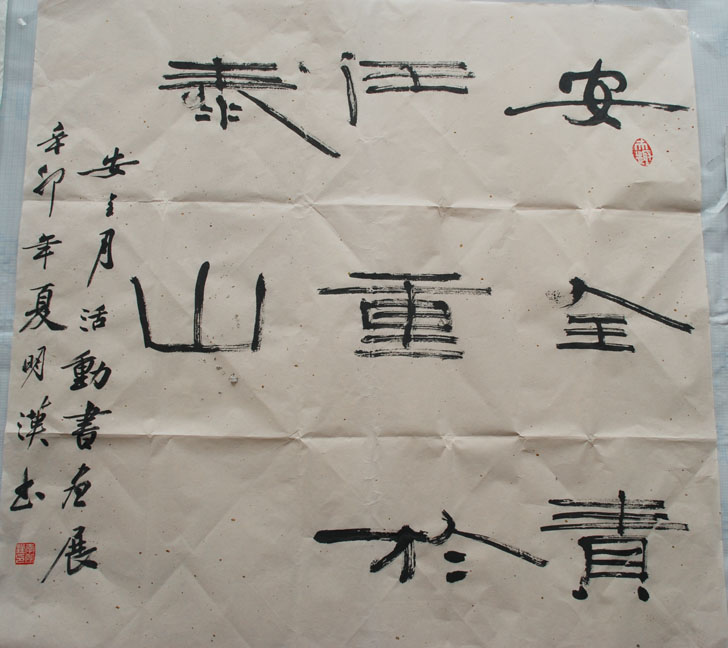 安全責
任重於
泰山
安全月活動書画展
辛卯年夏明漢书